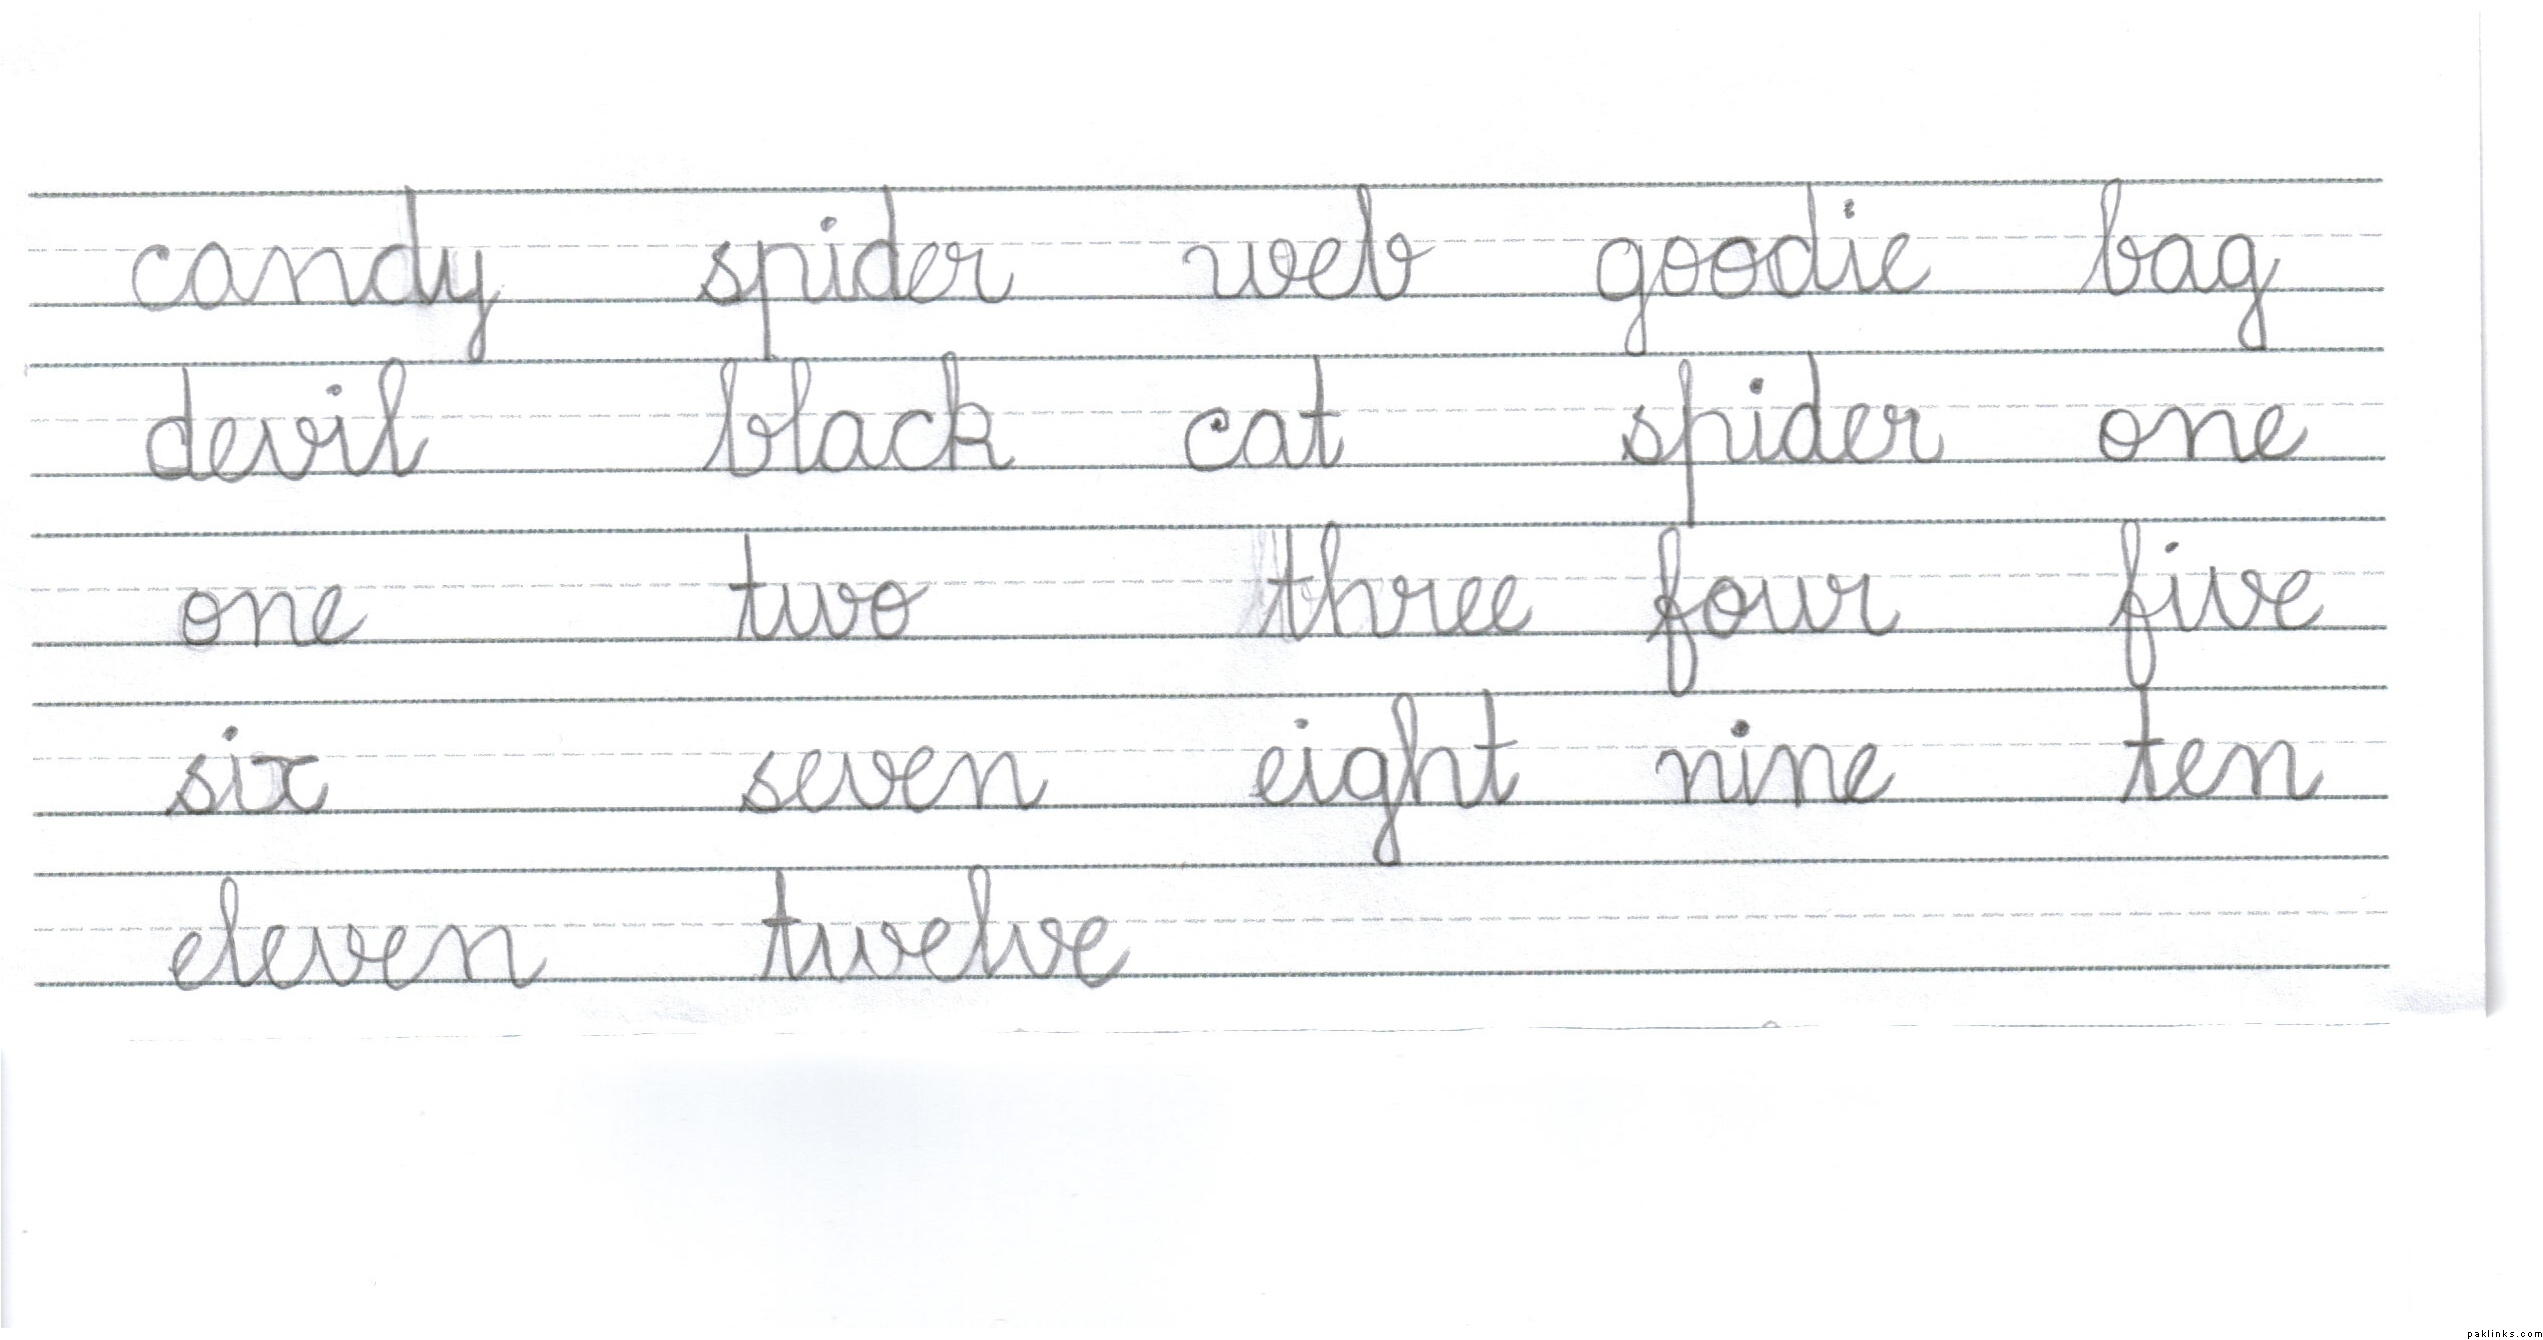 candy spider web goodie bag
devil black cat spider one
one two three four five
six seven eight nine ten
eleven twelve
paklinks.com